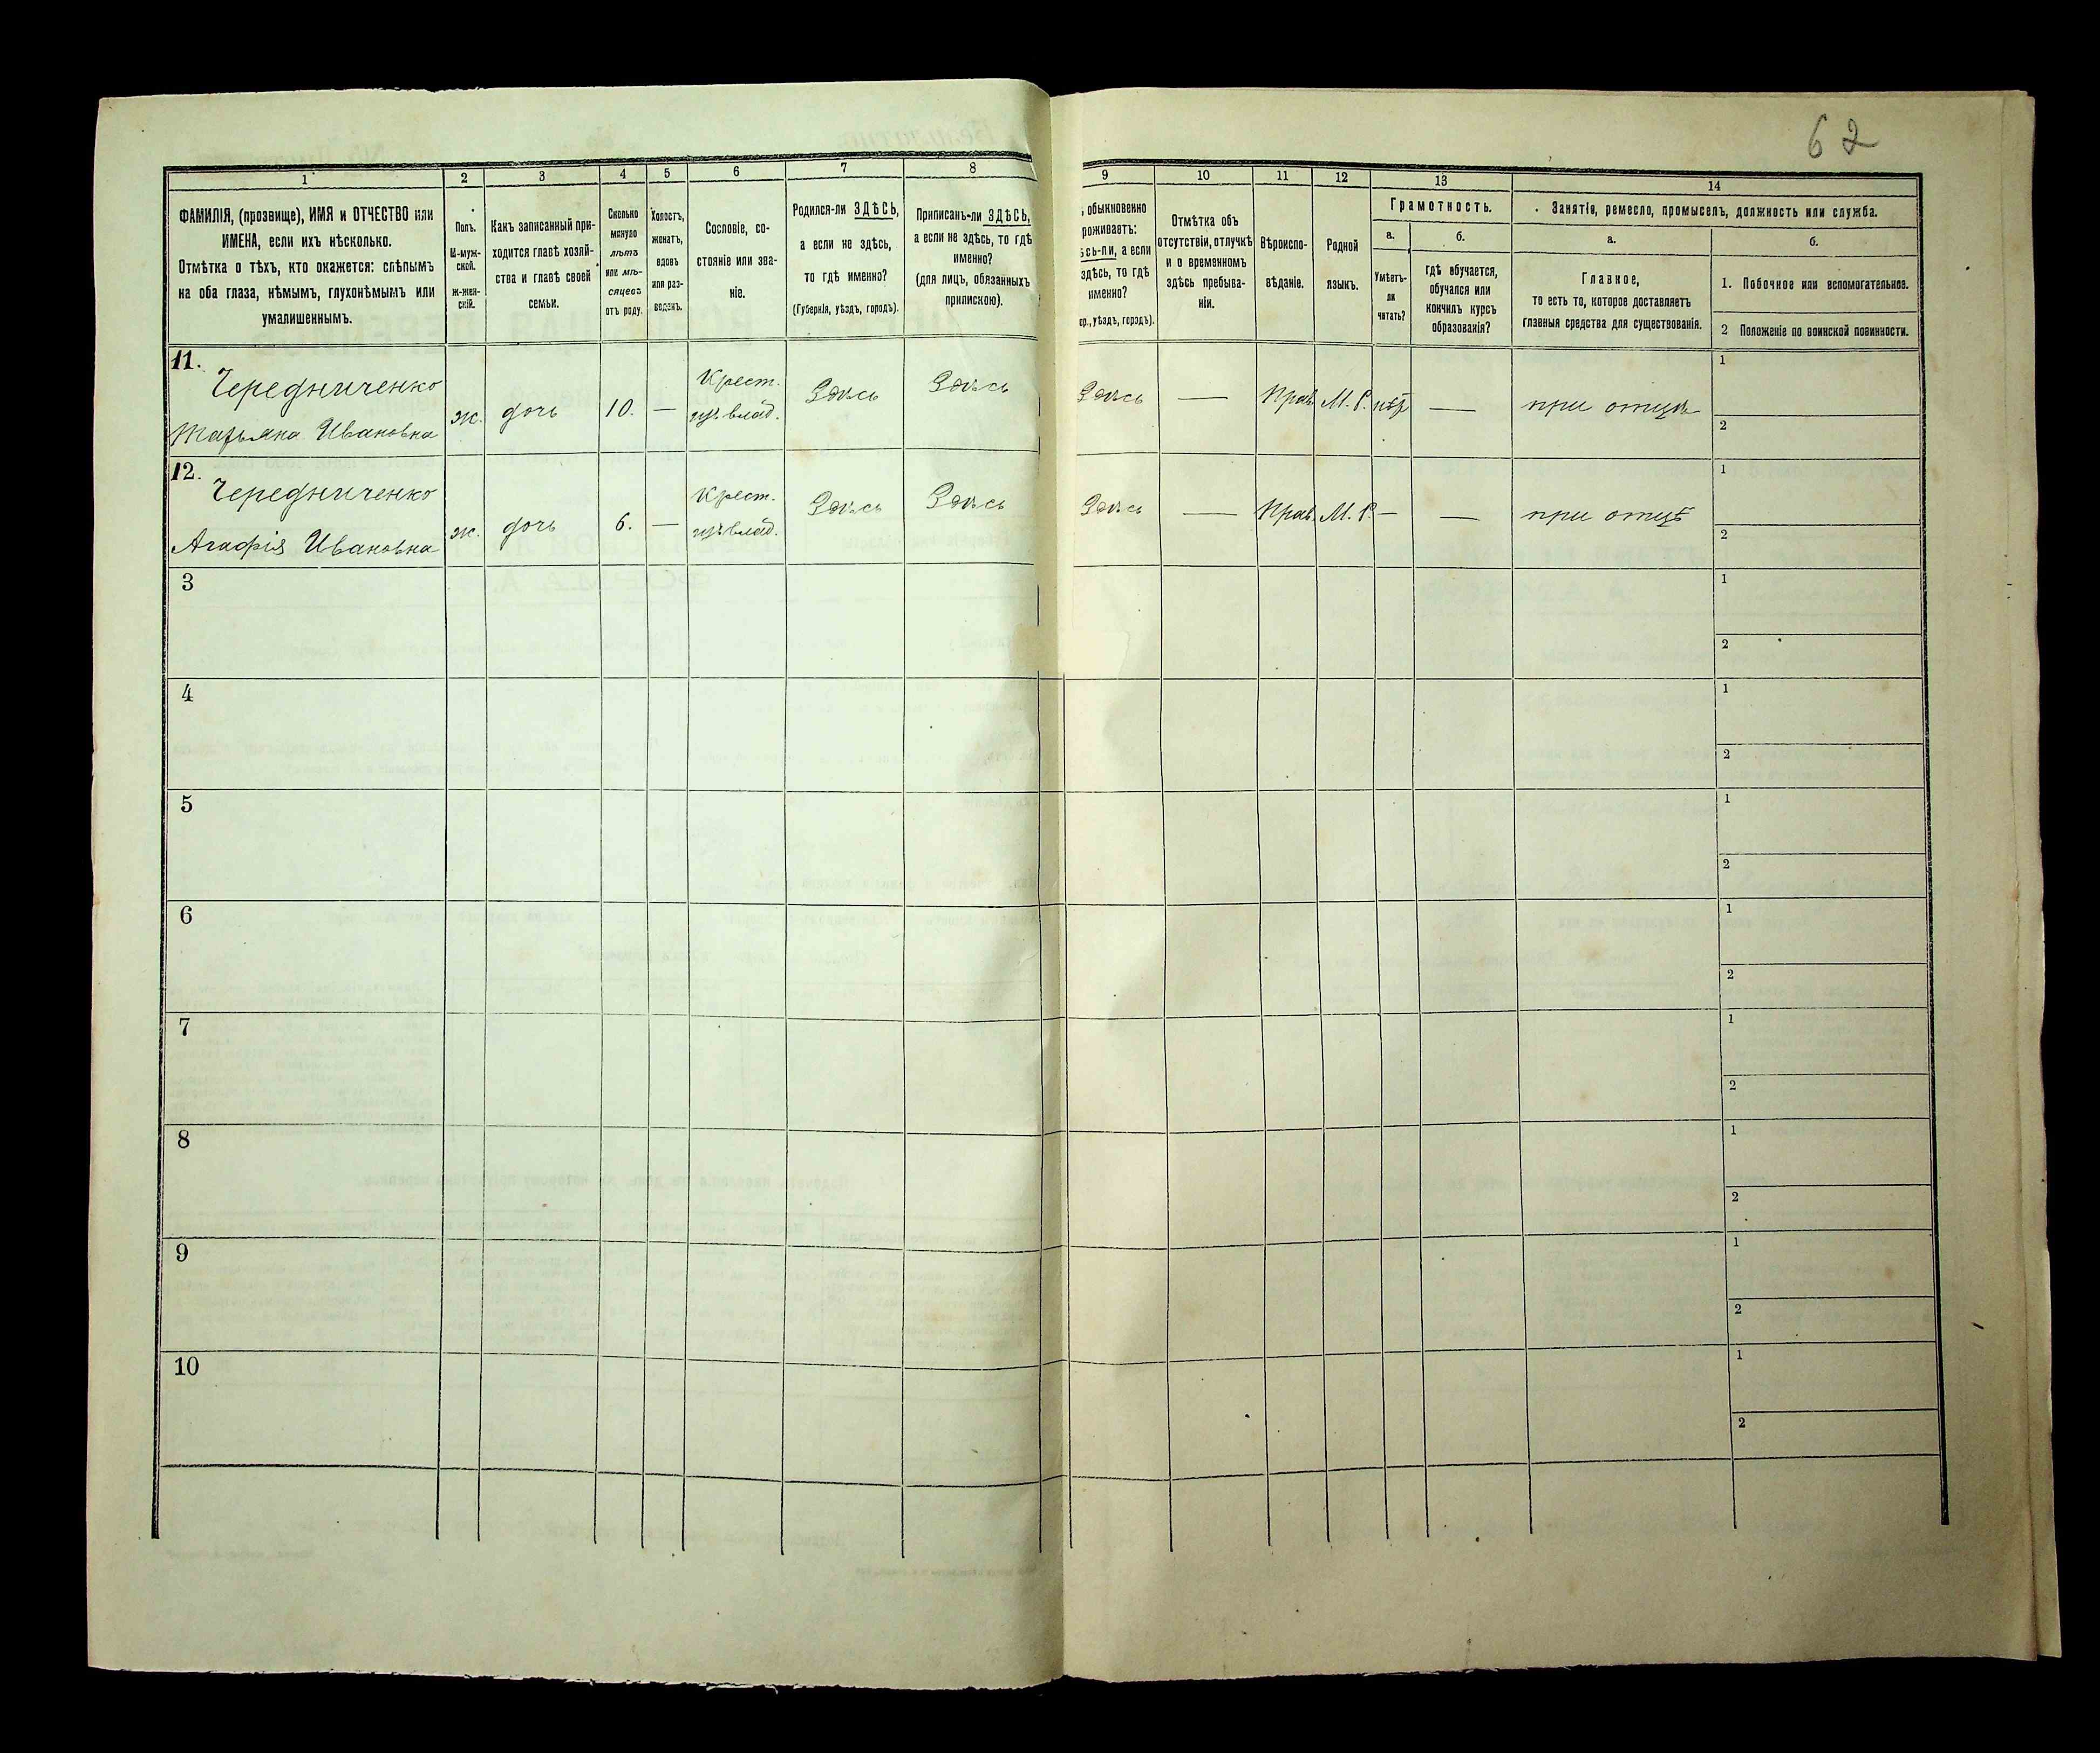 62
1 2 3 4 5 6 7 8 9 10 11 12 13 14
ФАМИЛІЯ, (прозвище), ИМЯ и ОТЧЕСТВО или
ИМЕНА, если ихъ нѣсколько.
Отмѣтка о тѣхъ, кто окажется: слѣпымъ
на оба глаза, нѣмымъ, глухонѣмымъ или
умалишеннымъ.
Полъ.
М-муж-
ской.
ж-жен-
скій.
Какъ записанный при-
ходится главѣ хозяй-
ства и главѣ своей
семьи.
Сколько
минуло
лѣтъ
или мѣ-
сяцевъ
отъ роду.
Холостъ,
женатъ,
вдовъ
или раз-
веденъ.
Сословіе, со-
стояніе или зва-
ніе.
Родился-ли ЗДѢСЬ,
а если не здѣсь,
то гдѣ именно?
(Губернія, уѣздъ, городъ).
Приписанъ-ли ЗДѢСЬ,
а если не здѣсь, то гдѣ
именно?
(для лицъ, обязанныхъ
припискою).
обыкновенно
роживаетъ:
ѣсь-ли, а если
здѣсь, то гдѣ
именно?
ер., уѣздъ, городъ).
Отмѣтка объ
отсутствіи, отлучкѣ
и о временномъ
здѣсь пребыва-
ніи.
Вѣроиспо-
вѣданіе.
Родной
языкъ.
Грамотность.
а.
Умѣетъ-
ли
читать?
б.
гдѣ обучается,
обучался или
кончилъ курсъ
образованія?
Занятіе, ремесло, промыселъ, должность или служба.
а.
Главное,
то есть то, которое доставляетъ
главныя средства для существованія.
б.
1. Побочное или вспомогательное.
2 Положеніе по воинской повинности.
11.
Чередниченко
Марьяна Ивановна
ж. дочь 10. —
Крест.
изъ влад.
Здѣсь Здѣсь Здѣсь — Прав. М. Р. нѣт — при отцѣ
1
2
12.
Чередниченко
Агафія Ивановна
ж. дочь 6. —
Крест.
изъ влад.
Здѣсь Здѣсь Здѣсь — Прав. М. Р. — — при отцѣ
1
2
3
1
2
4
1
2
5
1
2
6
1
2
7
1
2
8
1
2
9
1
2
10
1
2